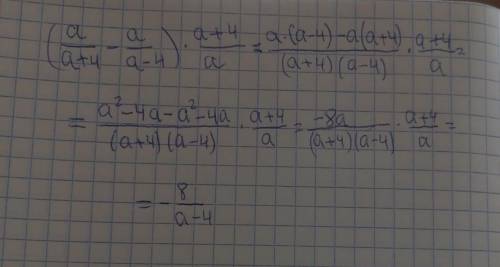 (a/(a+4) - a/(a-4)) · (a+4)/a = (a·(a-4)-a(a+4))/((a+4)(a-4)) · (a+4)/a =
= (a²-4a-a²-4a)/((a+4)(a-4)) · (a+4)/a = (-8a)/((a+4)(a-4)) · (a+4)/a =
= - 8/(a-4)